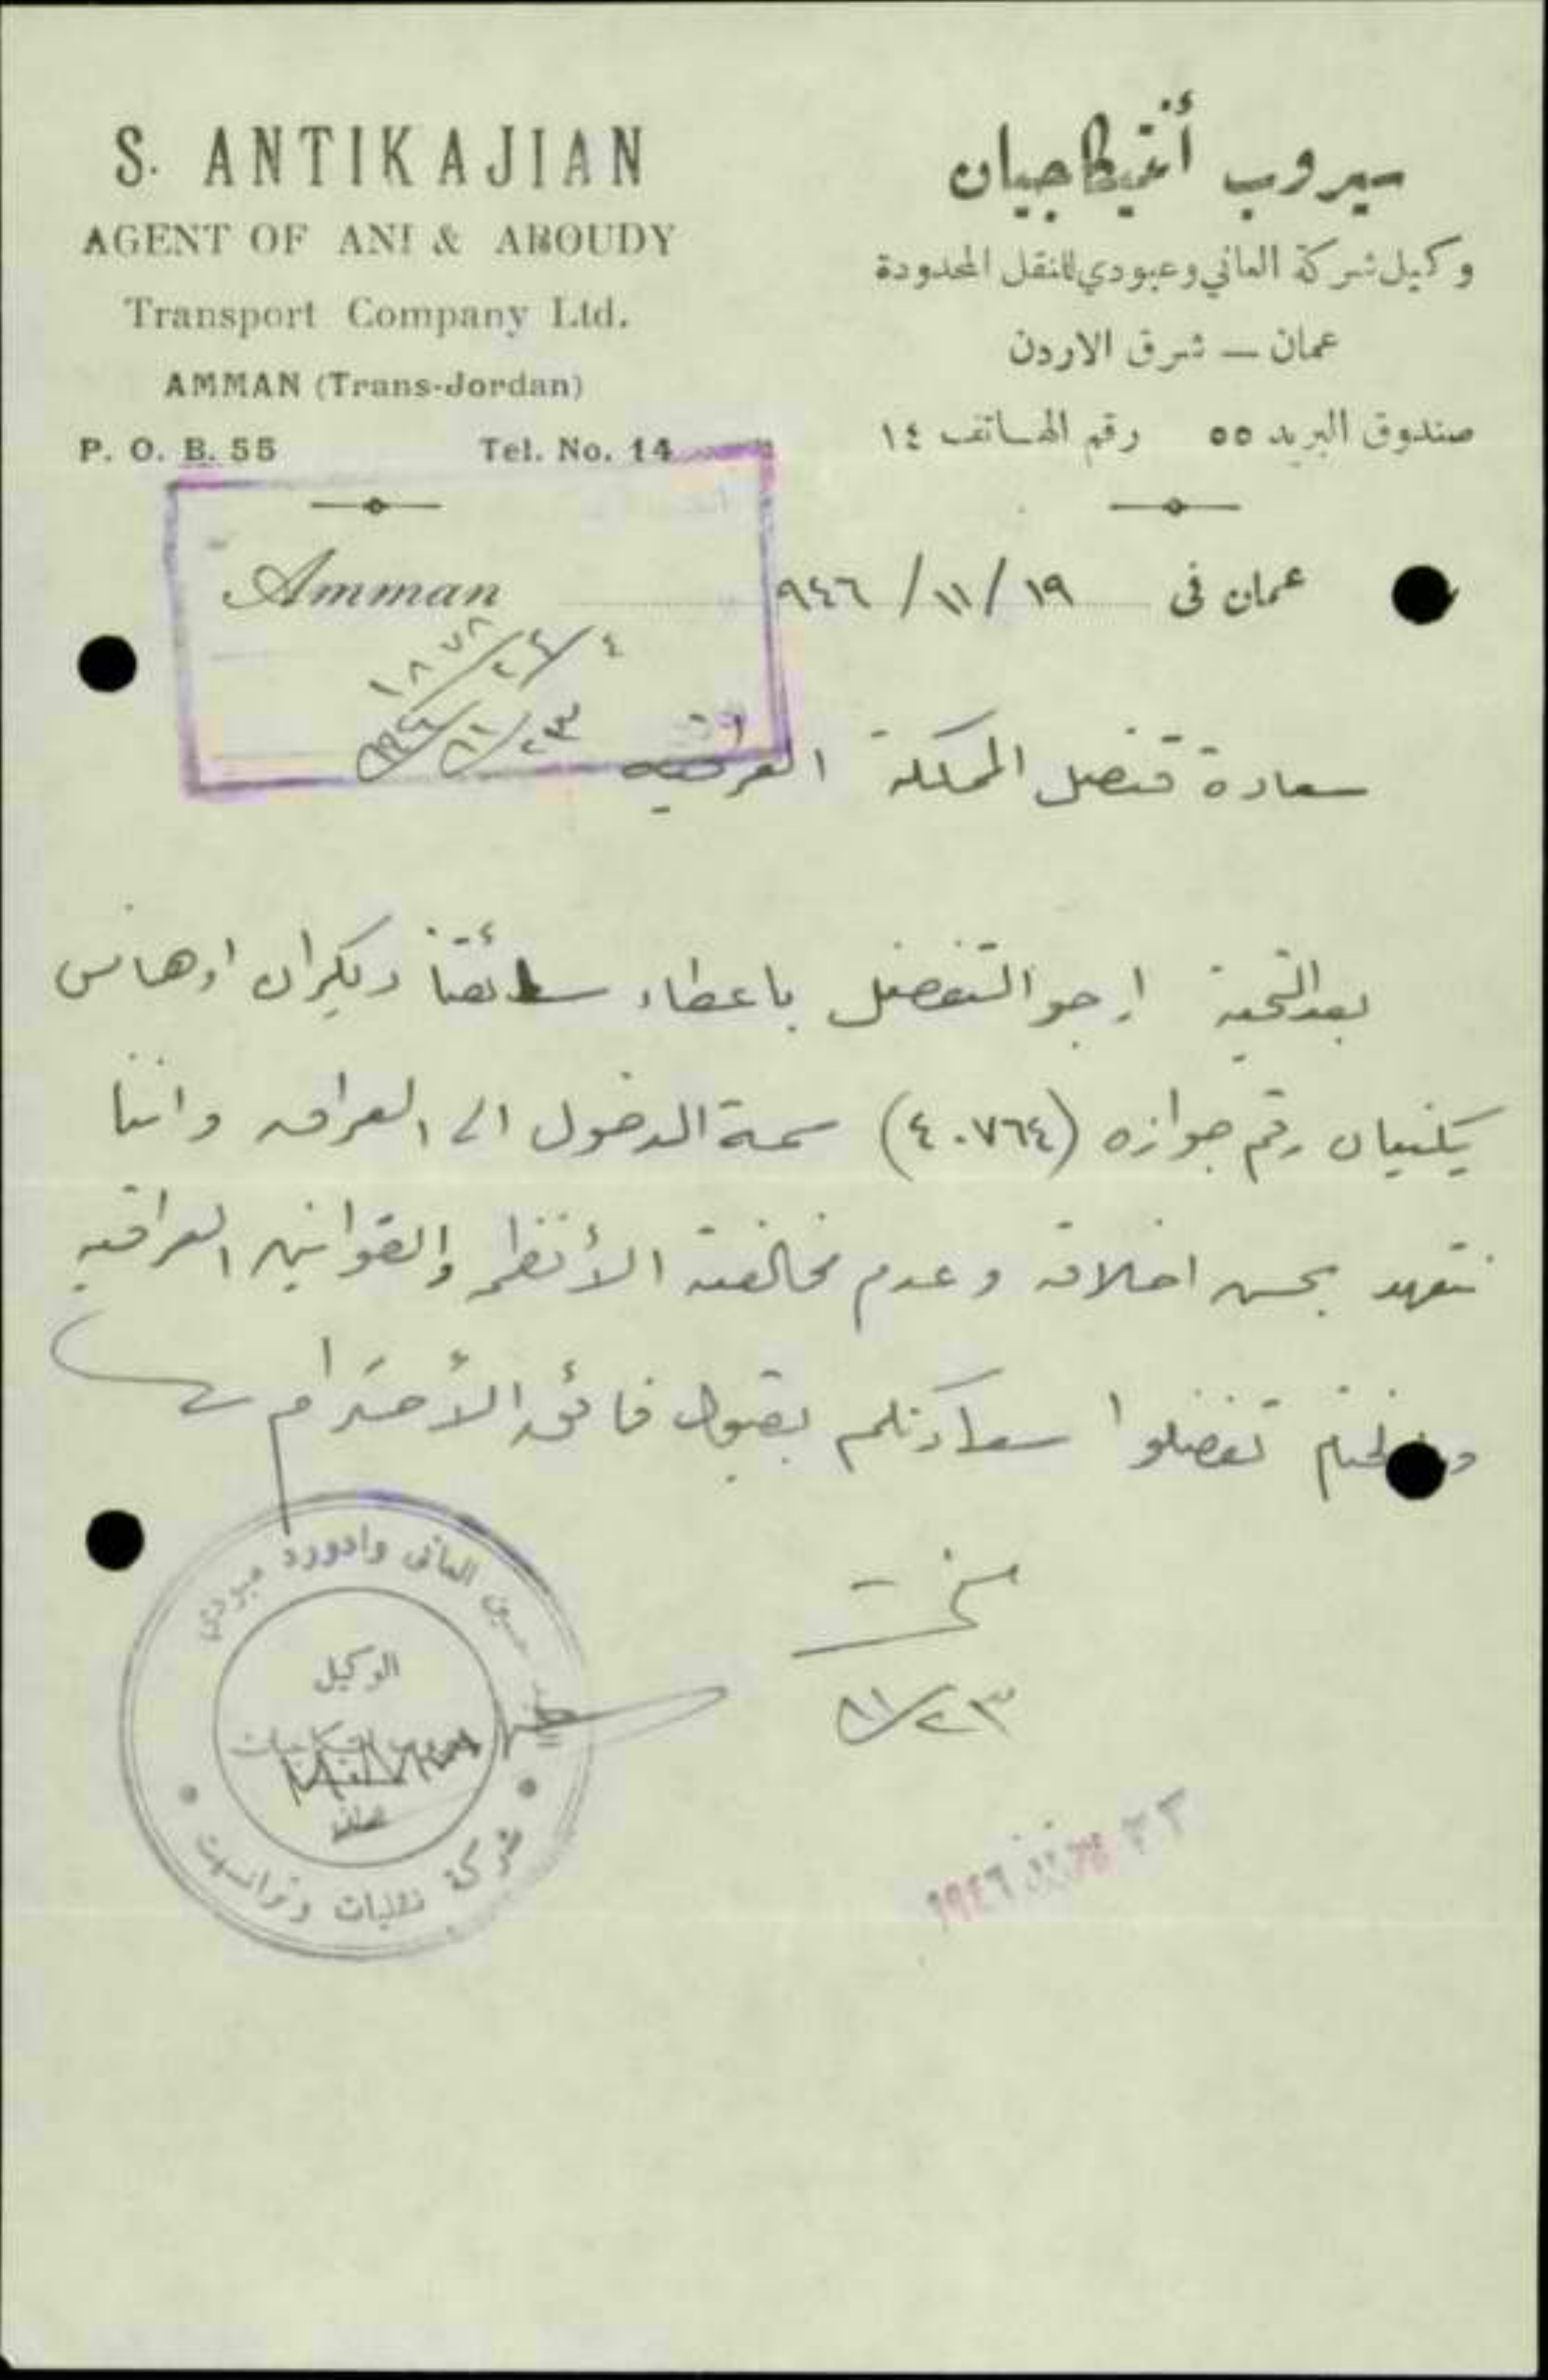 S. ANTIKAJIAN
AGENT OF ANI & ABOUDY
Transport Company Ltd.
AMMAN (Trans-Jordan)
P. O. B. 55 Tel. No. 14
سيروب أنتيكاجيان
وكيل شركة العاني وعبودي للنقل المحدودة
عمان — شرق الاردن
صندوق البريد ٥٥ رقم الهاتف ١٤
Amman
عمان في ١٩/ ١١/ ٩٤٦
٤/٢٤/١٨٧٨
٢٣/١١/٩٤٦
سعادة قنصل المملكة العراقيه
بعد التحية ارجو التفضل باعطاء سائقنا ديكران اوهانس
رقم جوازه (٤٠٧٦٤) سمة الدخول الى العراق واننا
نتعهد بحسن اخلاقه وعدم مخالفته الأنظمه والقوانين العراقيه
تفضلوا سعادتكم بقبول فائق الأحترام
منحت
٢٣/١١
حسين العاني وادورد عبودي
الوكيل
عمان
شركة نقليات وترانسيت